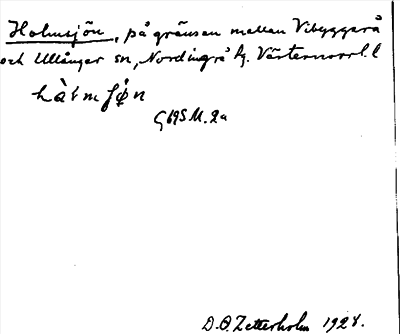 Holmsjön, på gränsen mellan Vibyggerå
och Ullånger sn, Nordingrå tg. Västernorrl. l
G 695 M. 2a
D. O. Zetterholm 1928.